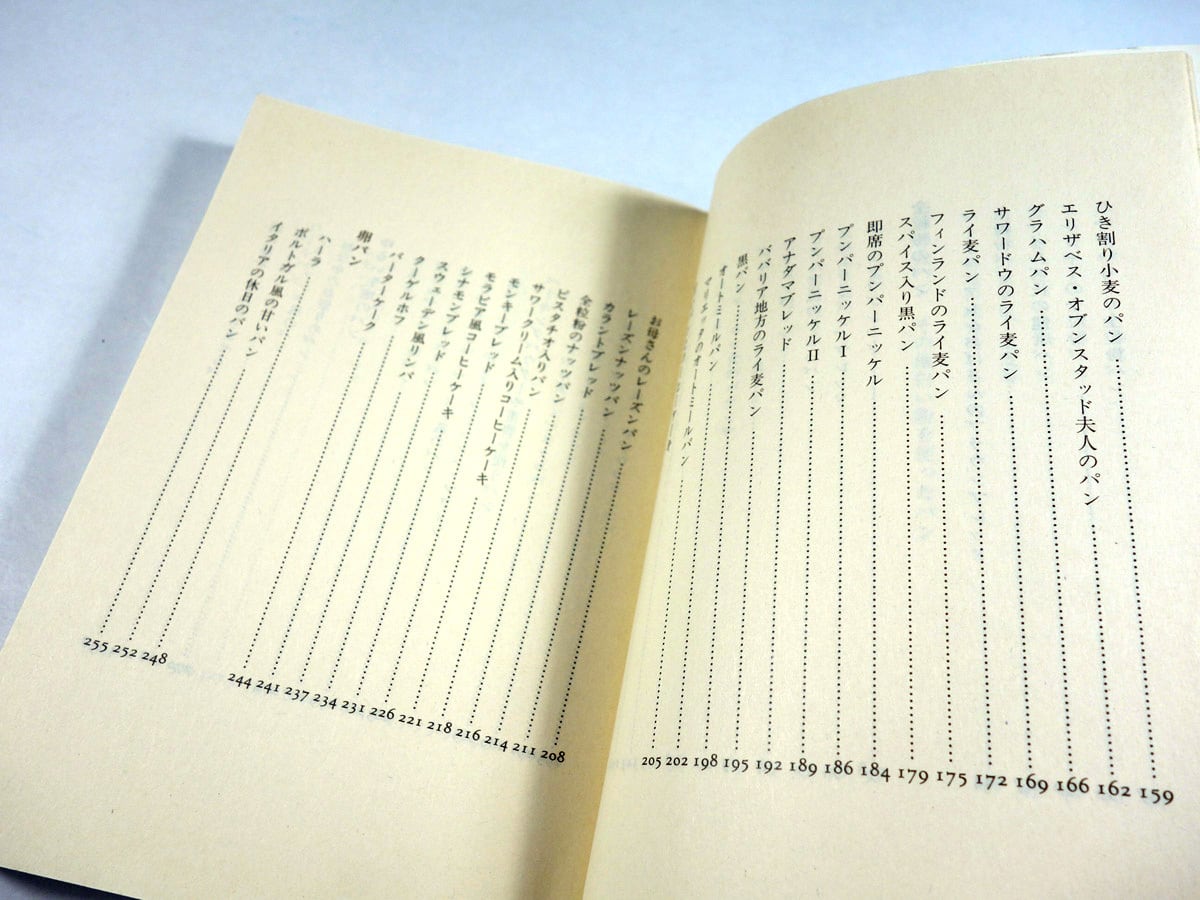 ひき割り小麦のパン……159
エリザベス・オブンスタッド夫人のパン……162
グラハムパン……166
サワードウのライ麦パン……169
ライ麦パン……172
フィンランドのライ麦パン……175
スパイス入り黒パン……179
即席のプンパーニッケル……184
プンパーニッケルⅠ……186
プンパーニッケルⅡ……189
アナダマブレッド……192
ババリア地方のライ麦パン……195
黒パン……198
オートミールパン……202
マリエッタのオートミールパン……205
お母さんのレーズンパン……208
レーズンナッツパン……211
カラントブレッド……214
全粒粉のナッツパン……216
ピスタチオ入りパン……218
サワークリーム入りコーヒーケーキ……221
モンキーブレッド……226
モラビア風コーヒーケーキ……231
シナモンブレッド……234
スウェーデン風リンパ……237
クーゲルホフ……241
バターケーク……244
卵パン
ハーラ……248
ポルトガル風の甘いパン……252
イタリアの休日のパン……255